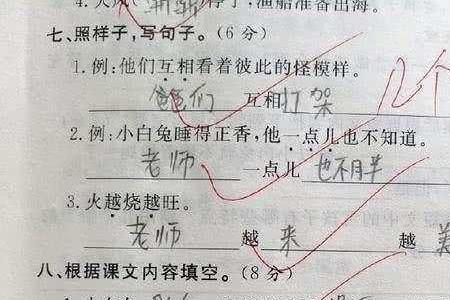 七、照样子,写句子。(6分)
1. 例:他们互相看着彼此的怪模样。
爸爸们 互相打架
12个
2. 例:小白兔睡得正香,他一点儿也不知道。
老师 一点儿 也不胖
3. 火越烧越旺。
老师 越 来 越
八、根据课文内容填空。(8分)